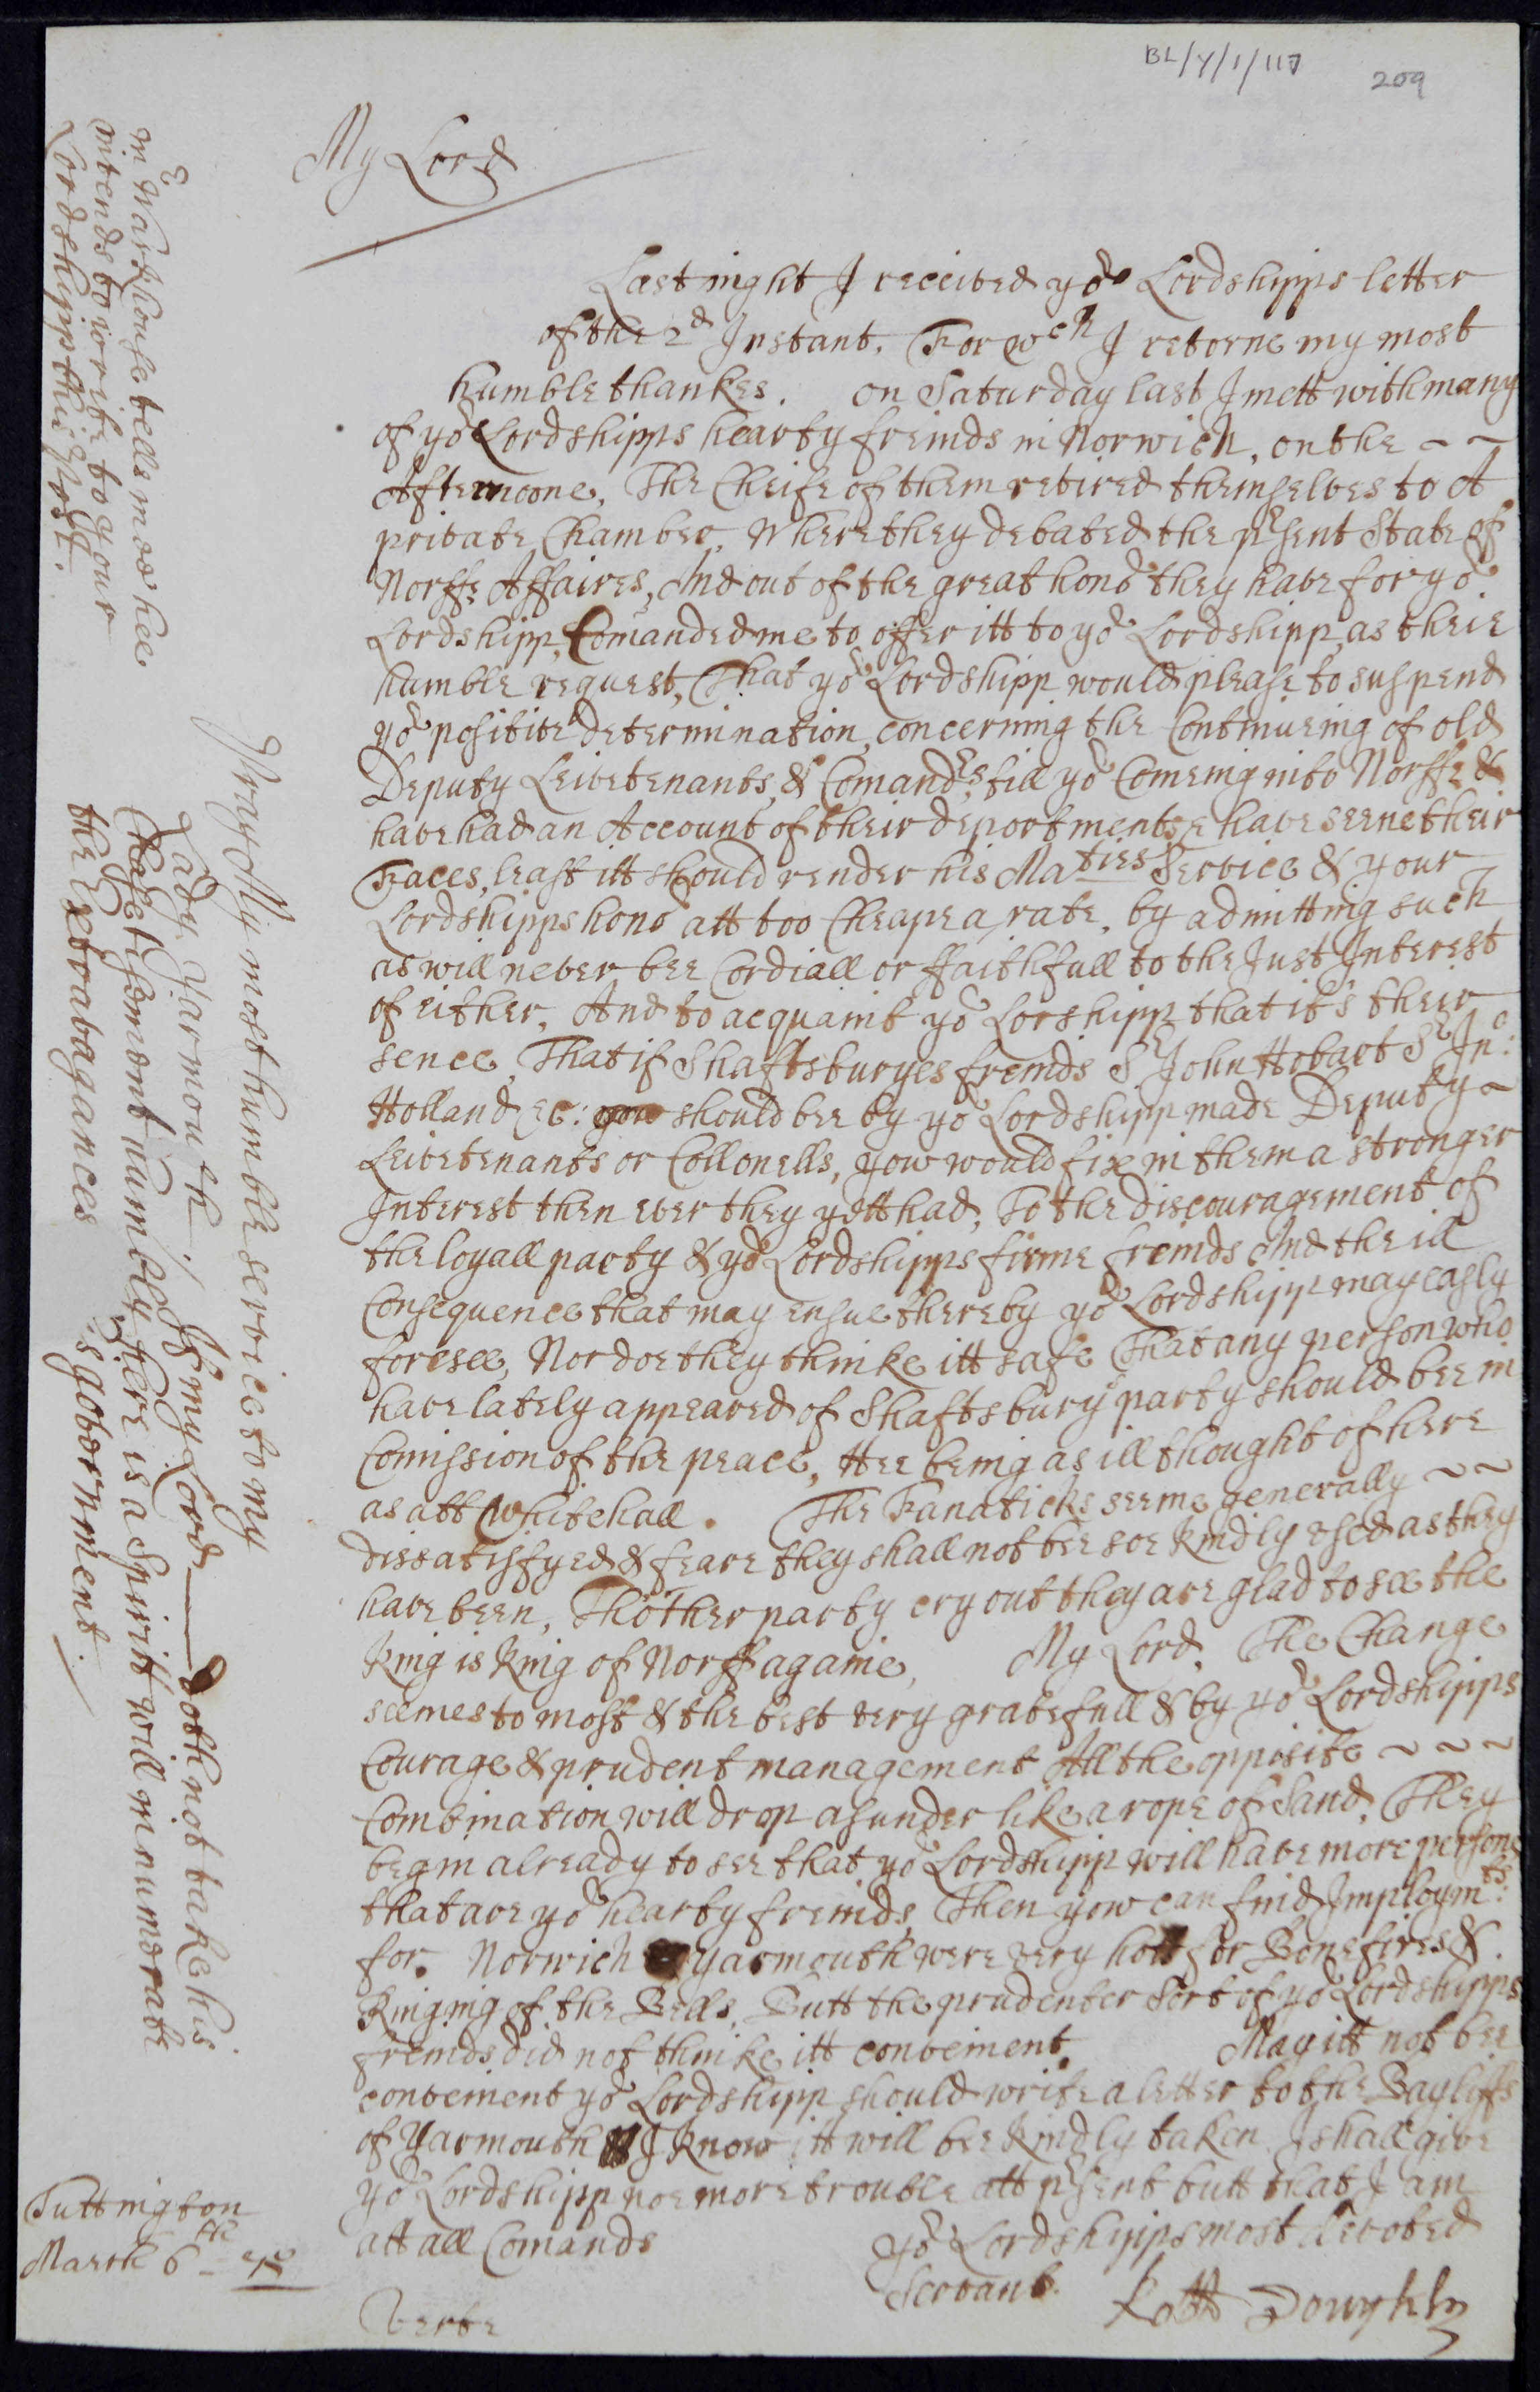 BL/Y/1/117
209
My Lord
Last night I received yor Lordshipps letter
of the 2d Instant. For wch I retorne my most
humble thankes. on Saturday last I mett with many
of yor Lordshipps hearty freinds in Norwich, on the ~ ~
Afternoone, The Cheife of them retired themselves to A
private Chamber, Where they debated the psent State of
Norff: Affaires, And out of the great honor they have for yor
Lordshipp, Comanded me to offer itt to yor Lordshipp as theie
humble request, That yor Lordshipp would please to suspend
yor positive determination, concerning the Continueing of old
Deputy Leivetenants, & Comandrs, till yor Comeing into Norff: &
have had an Account of their deportments, & have seene their
Faces, least itt should render his Maties Service & your
Lordshipps honor att too Cheape a rate, by admitting such
as will never bee Cordiall or ffaithfull to the Just Interest
of either, And to acquaint yor Lorshipp that it's their
sence, That if Shaftsburyes freinds Sr John Hobart Sr Jno:
Holland &c: should bee by yor Lordshipp made Deputy ~
Leivetenants or Collonells, yow would fix in them a stronger
Interest then ever they yett had, To the discouragement of
the loyall party & yor Lordshipps firme freinds And the ill
Consequence that may ensue thereby yor Lordshipp may easly
foresee, Nor doe they thinke itt safe That any person who
have lately appeared of Shaftsburys party should bee in
Comission of the peace, Hee being as ill thought of here
as att Whitehall. The Fanaticks seeme generally ~ ~
dissatisfyed & feare they shall not bee soe kindly used as they
have been, Th'other party cry out they are glad to see the
King is King of Norff againe, My Lord, The Change
seemes to most & the best very gratefull & by yor Lordshipps
Courage & prudent management All the opposite ~ ~ ~
Combination will drop asunder like a rope of Sand, They
begin already to see that yor Lordshipp will have more persons
that are yor hearty freinds, Then yow can find Imploymts:
for. Norwich Yarmouth were very hott for Bonefires &
Ringing of the Bells, Butt the prudenter Sort of yor Lordshipps
freinds did not thinke itt convenient. May itt not bee
convenient yor Lordshipp should write a letter to the Bayliffs
of Yarmouth I know itt will bee kindly taken I shall give
yor Lordshipp noe more trouble att psent butt that I am
att all Comands yor Lordshipps most devoted
Servant.
Verte
Tuttington
March 6th
Pray My most humble service to my
Lady Yarmouth. If my Lord — doth not take his
Chastisement humbly, here is a Spirit will innumerate
the Extravagances of 's government.
Mr Warkhouse tells mee hee
intends to write to your
Lordshipp this Post.